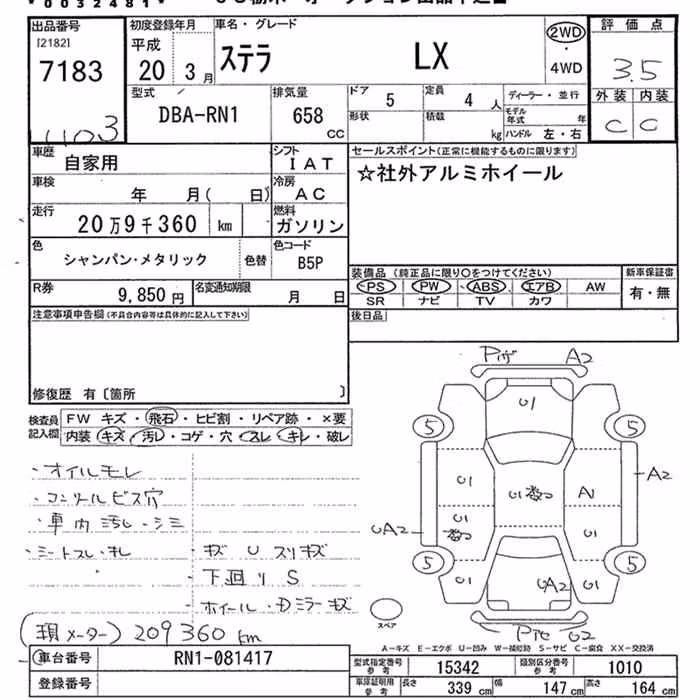 0032481
出品番号 初度登録年月 車名・グレード 評価点
[2182] 平成 2WD
7183 20 3月 ステラ LX ・ 3.5
4WD
型式 排気量 ドア 定員 ディーラー・並行 外装 内装
DBA-RN1 658 5 4人 モデル年式 年 C C
1103 CC 形状 積載 kg ハンドル 左・右
車歴 自家用 シフト IAT セールスポイント(正常に機能するものに限ります)
車検 年 月( 日) 冷房 AC ☆社外アルミホイール
走行 20万9千360 km 燃料 ガソリン
色 シャンパン・メタリック 色替 色コード B5P
装備品 (純正品に限り○をつけてください) 新車保証書
R券 9,850円 名変通知期限 月 日 PS PW ABS エアB AW 有・無
SR ナビ TV カワ
注意事項申告欄(不具合内容等は具体的に記入して下さい) 後日品
修復歴 有〔箇所 〕
検査員記入欄 FW キズ・飛石・ヒビ割・リペア跡・×要
内装 キズ・汚レ・コゲ・穴・スレ・キレ・破レ
・オイルモレ
・コンソールビス穴
・車内汚レ・シミ
・シートスレ・キレ ・キズ U スリキズ
・下廻りS
・ホイール・Dミラーキズ
(現メーター) 209360km
A2
U1
5 5
U1 U1 A1 A2
UA2 U1 U1
5 5
U1 UA2 U1
スペア
U2
A-キズ E-エクボ U-凹み W-補修跡 S-サビ C-腐食 XX-交換済
車台番号 RN1-081417 型式指定番号 参考 15342 類別区分番号 参考 1010
登録番号 車庫証明用 参考 長さ 339cm 幅 147cm 高さ 164cm